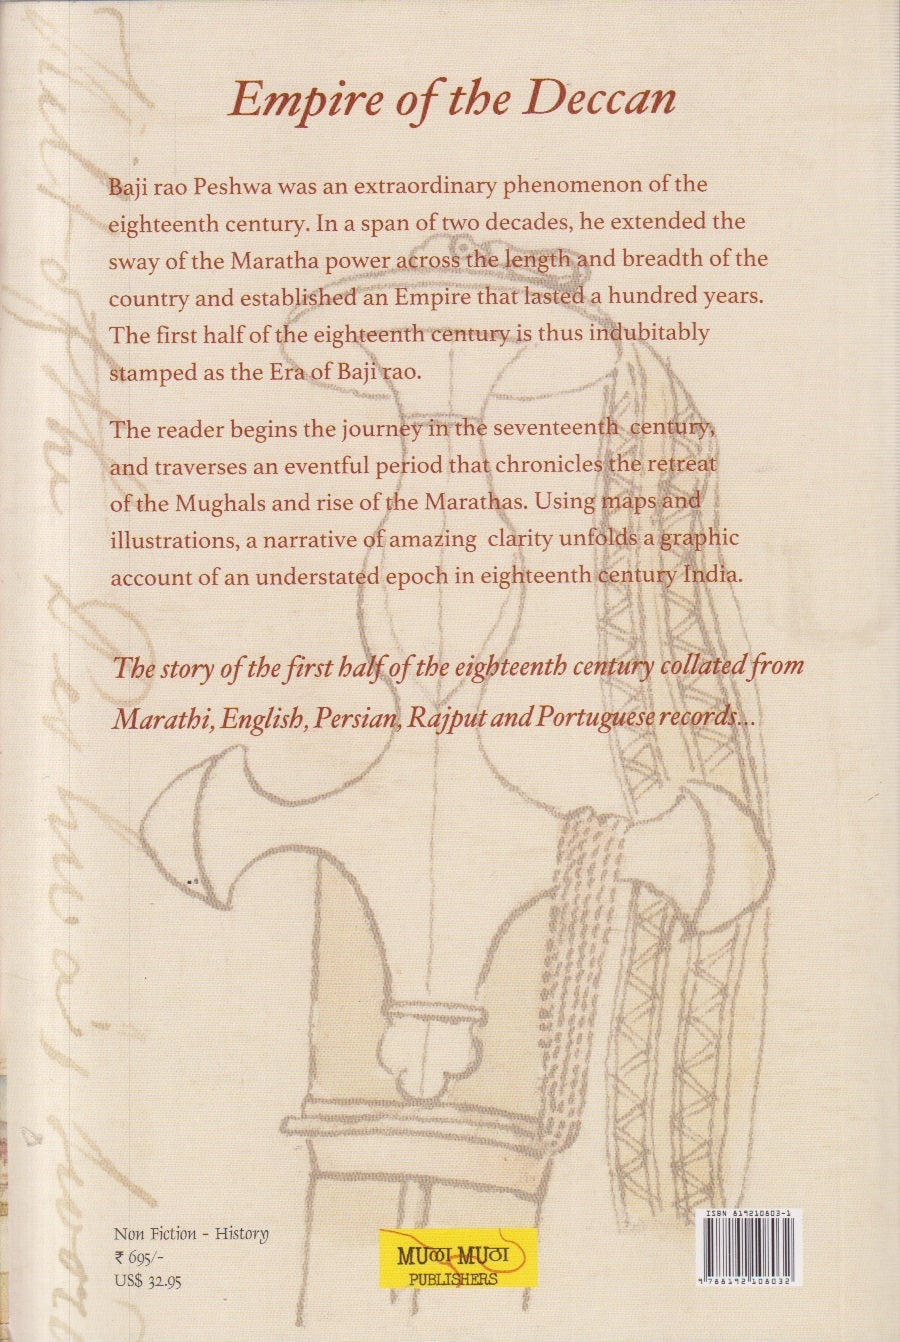 Empire of the Deccan
Baji rao Peshwa was an extraordinary phenomenon of the
eighteenth century. In a span of two decades, he extended the
sway of the Maratha power across the length and breadth of the
country and established an Empire that lasted a hundred years.
The first half of the eighteenth century is thus indubitably
stamped as the Era of Baji rao.
The reader begins the journey in the seventeenth century,
and traverses an eventful period that chronicles the retreat
of the Mughals and rise of the Marathas. Using maps and
illustrations, a narrative of amazing clarity unfolds a graphic
account of an understated epoch in eighteenth century India.
The story of the first half of the eighteenth century collated from
Marathi, English, Persian, Rajput and Portuguese records...
Non Fiction - History
₹ 695/-
US$ 32.95
MUळा MUठा
PUBLISHERS
ISBN 819210803-1
9 788192 108032
Hilt of the